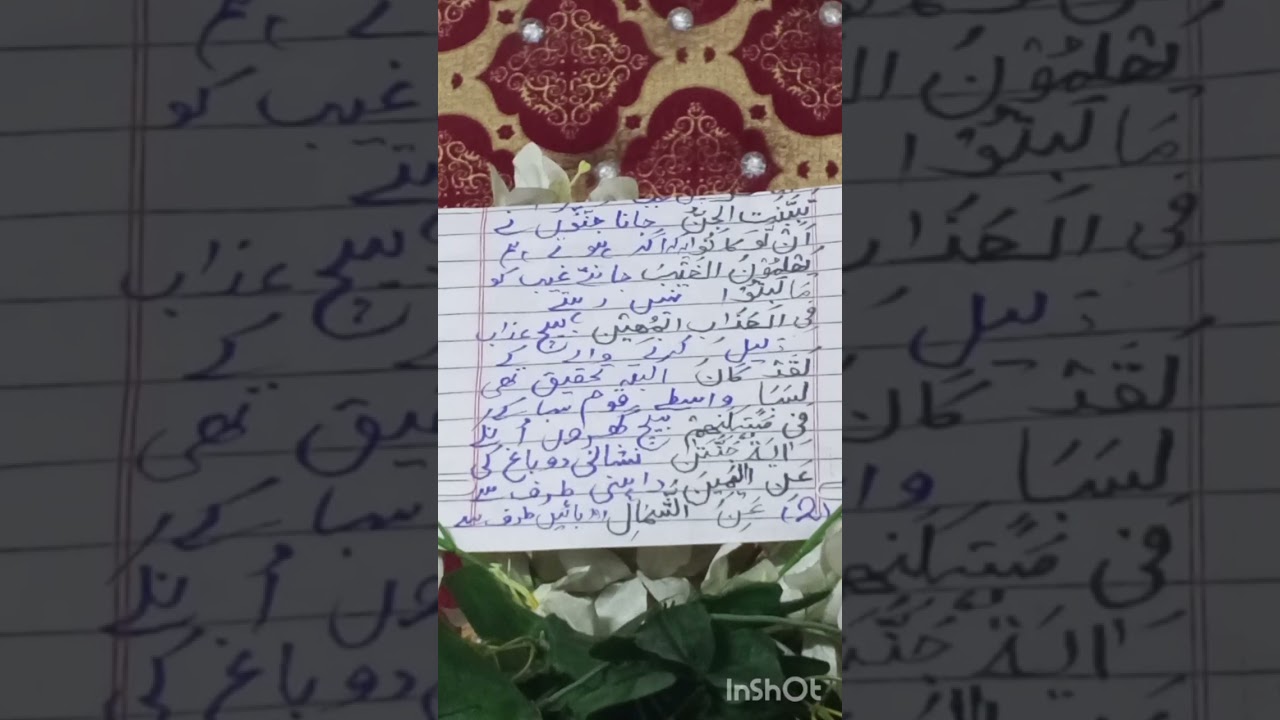 تَبَيَّنَتِ الْجِنُّ جانا جنوں نے
اَنْ لَّوْ كَانُوْا یہ اگر ہوتے ہم
يَعْلَمُوْنَ الْغَيْبَ جانتے غیب کو
مَا لَبِثُوْا نہیں رہتے
فِى الْعَذَابِ الْمُهِيْنِ بیچ عذاب
ذلیل کرنے والے کے
لَقَدْ كَانَ البتہ تحقیق تھی
لِسَبَا واسطے قوم سبا کے
فِىْ مَسْكَنِهِمْ بیچ گھروں اُنکے
اٰيَةٌ جَنَّتٰنِ نشانی دو باغ کی
عَنْ الْيَمِيْنِ داہنی طرف سے
(2) عَنِ الشِّمَالِ بائیں طرف سے
InShOt